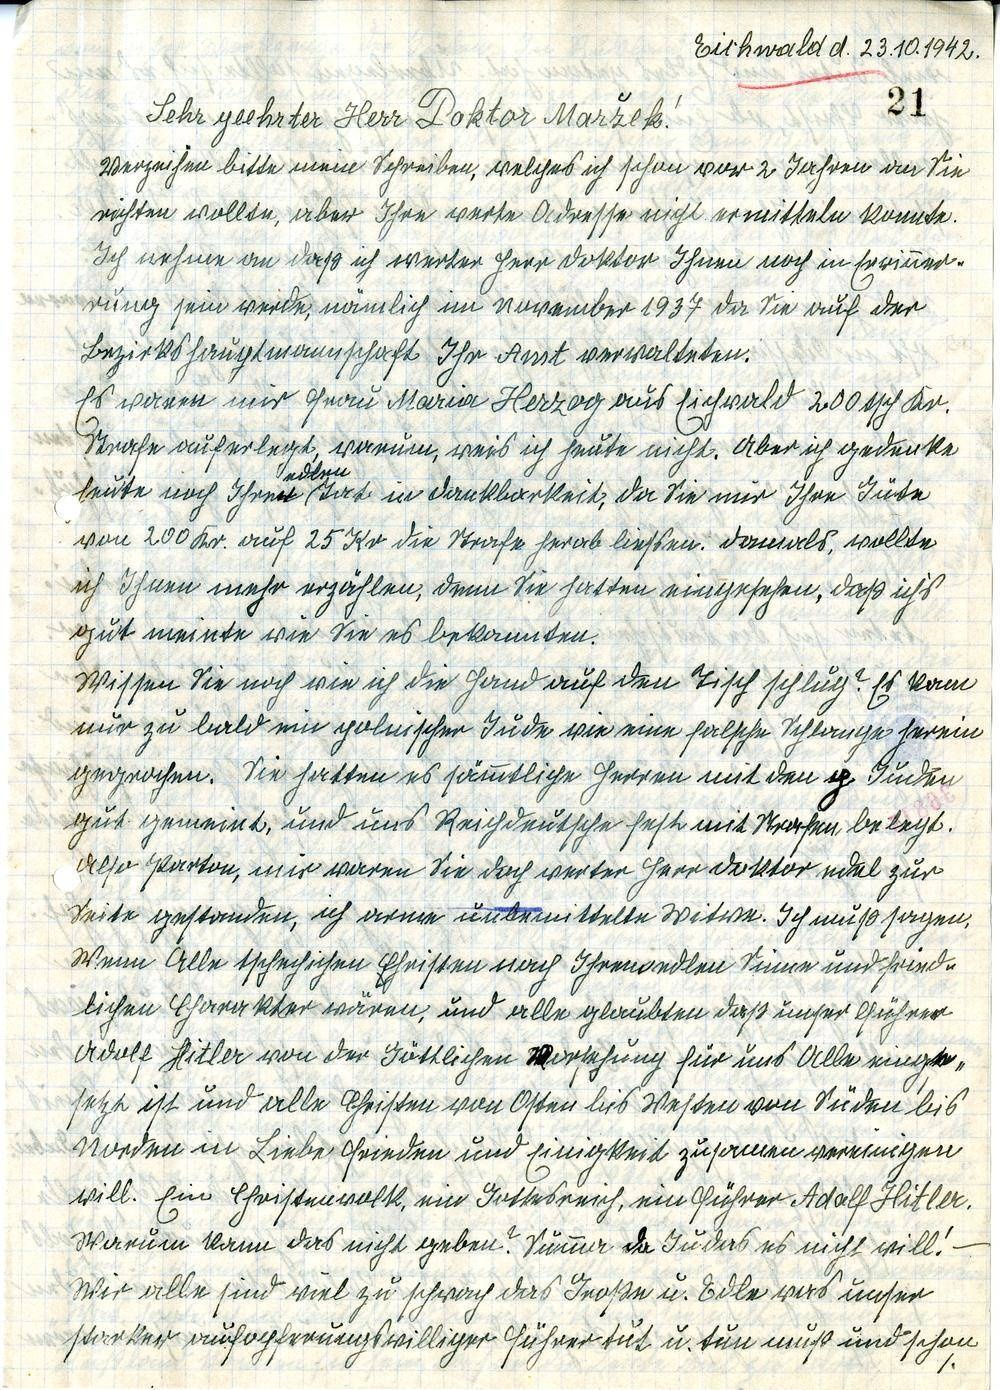 Eichwald d. 23.10.1942.
21
Sehr geehrter Herr Doktor Maržek!
Verzeihen bitte mein Schreiben, welches ich schon vor 2 Jahren an Sie
richten wollte, aber Ihre werte Adresse nicht ermitteln konnte.
Ich nehme an daß ich werter Herr Doktor Ihnen noch in Erinner-
rung sein werde, nämlich im November 1937 da Sie auf der
Bezirkshauptmannschaft Ihr Amt verwalteten.
Es waren mir Frau Maria Herzog aus Eichwald 200 tsch Kr.
Strafe auferlegt, warum, weis ich heute nicht. Aber ich gedenke
edlen
heute noch Ihren Tat in Dankbarkeit, da Sie mir Ihre Güte
von 200 Kr. auf 25 Kr die Strafe herab liessen. Damals, wollte
ich Ihnen mehr erzählen, denn Sie hatten eingesehen, daß ich's
gut meinte wie Sie es bekannten.
Wissen Sie noch wie ich die Hand auf den Tisch schlug? Es kam
nur zu bald ein polnischer Jude wie eine falsche Schlange herein
gegrochen. Sie hatten es sämtliche Herren mit den Juden
gut gemeint, und uns Reichdeutsche fest mit Strafen belegt.
Also Parton, mir waren Sie doch werter Herr Doktor edel zur
Seite gestanden, ich arme unbemittelte Witwe. Ich muß sagen,
Wenn Alle tschechichen Christen nach Ihren edlen Sinne und fried-
lichen Charakter wären, und alle glaubten daß unser Führer
Adolf Hitler von der Göttlichen Vorsehung für uns Alle einge-
setzt ist und alle Christen von Osten bis Westen von Süden bis
Norden in Liebe Frieden und Einigkeit zusamen vereinigen
will. Ein Christenvolk, ein Gottesreich, ein Führer Adolf Hitler.
Warum kann das nicht geben? Summa da Judas es nicht will! —
Wir alle sind viel zu schwach das Große u. Edle was unser
starker aufopferungswilliger Führer tut u. tun muß und schon
/.